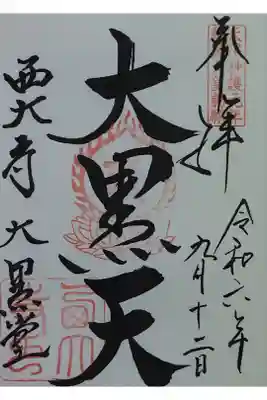 奉拝
令和六年
九月十二日
大黒天
西大寺 大黒堂